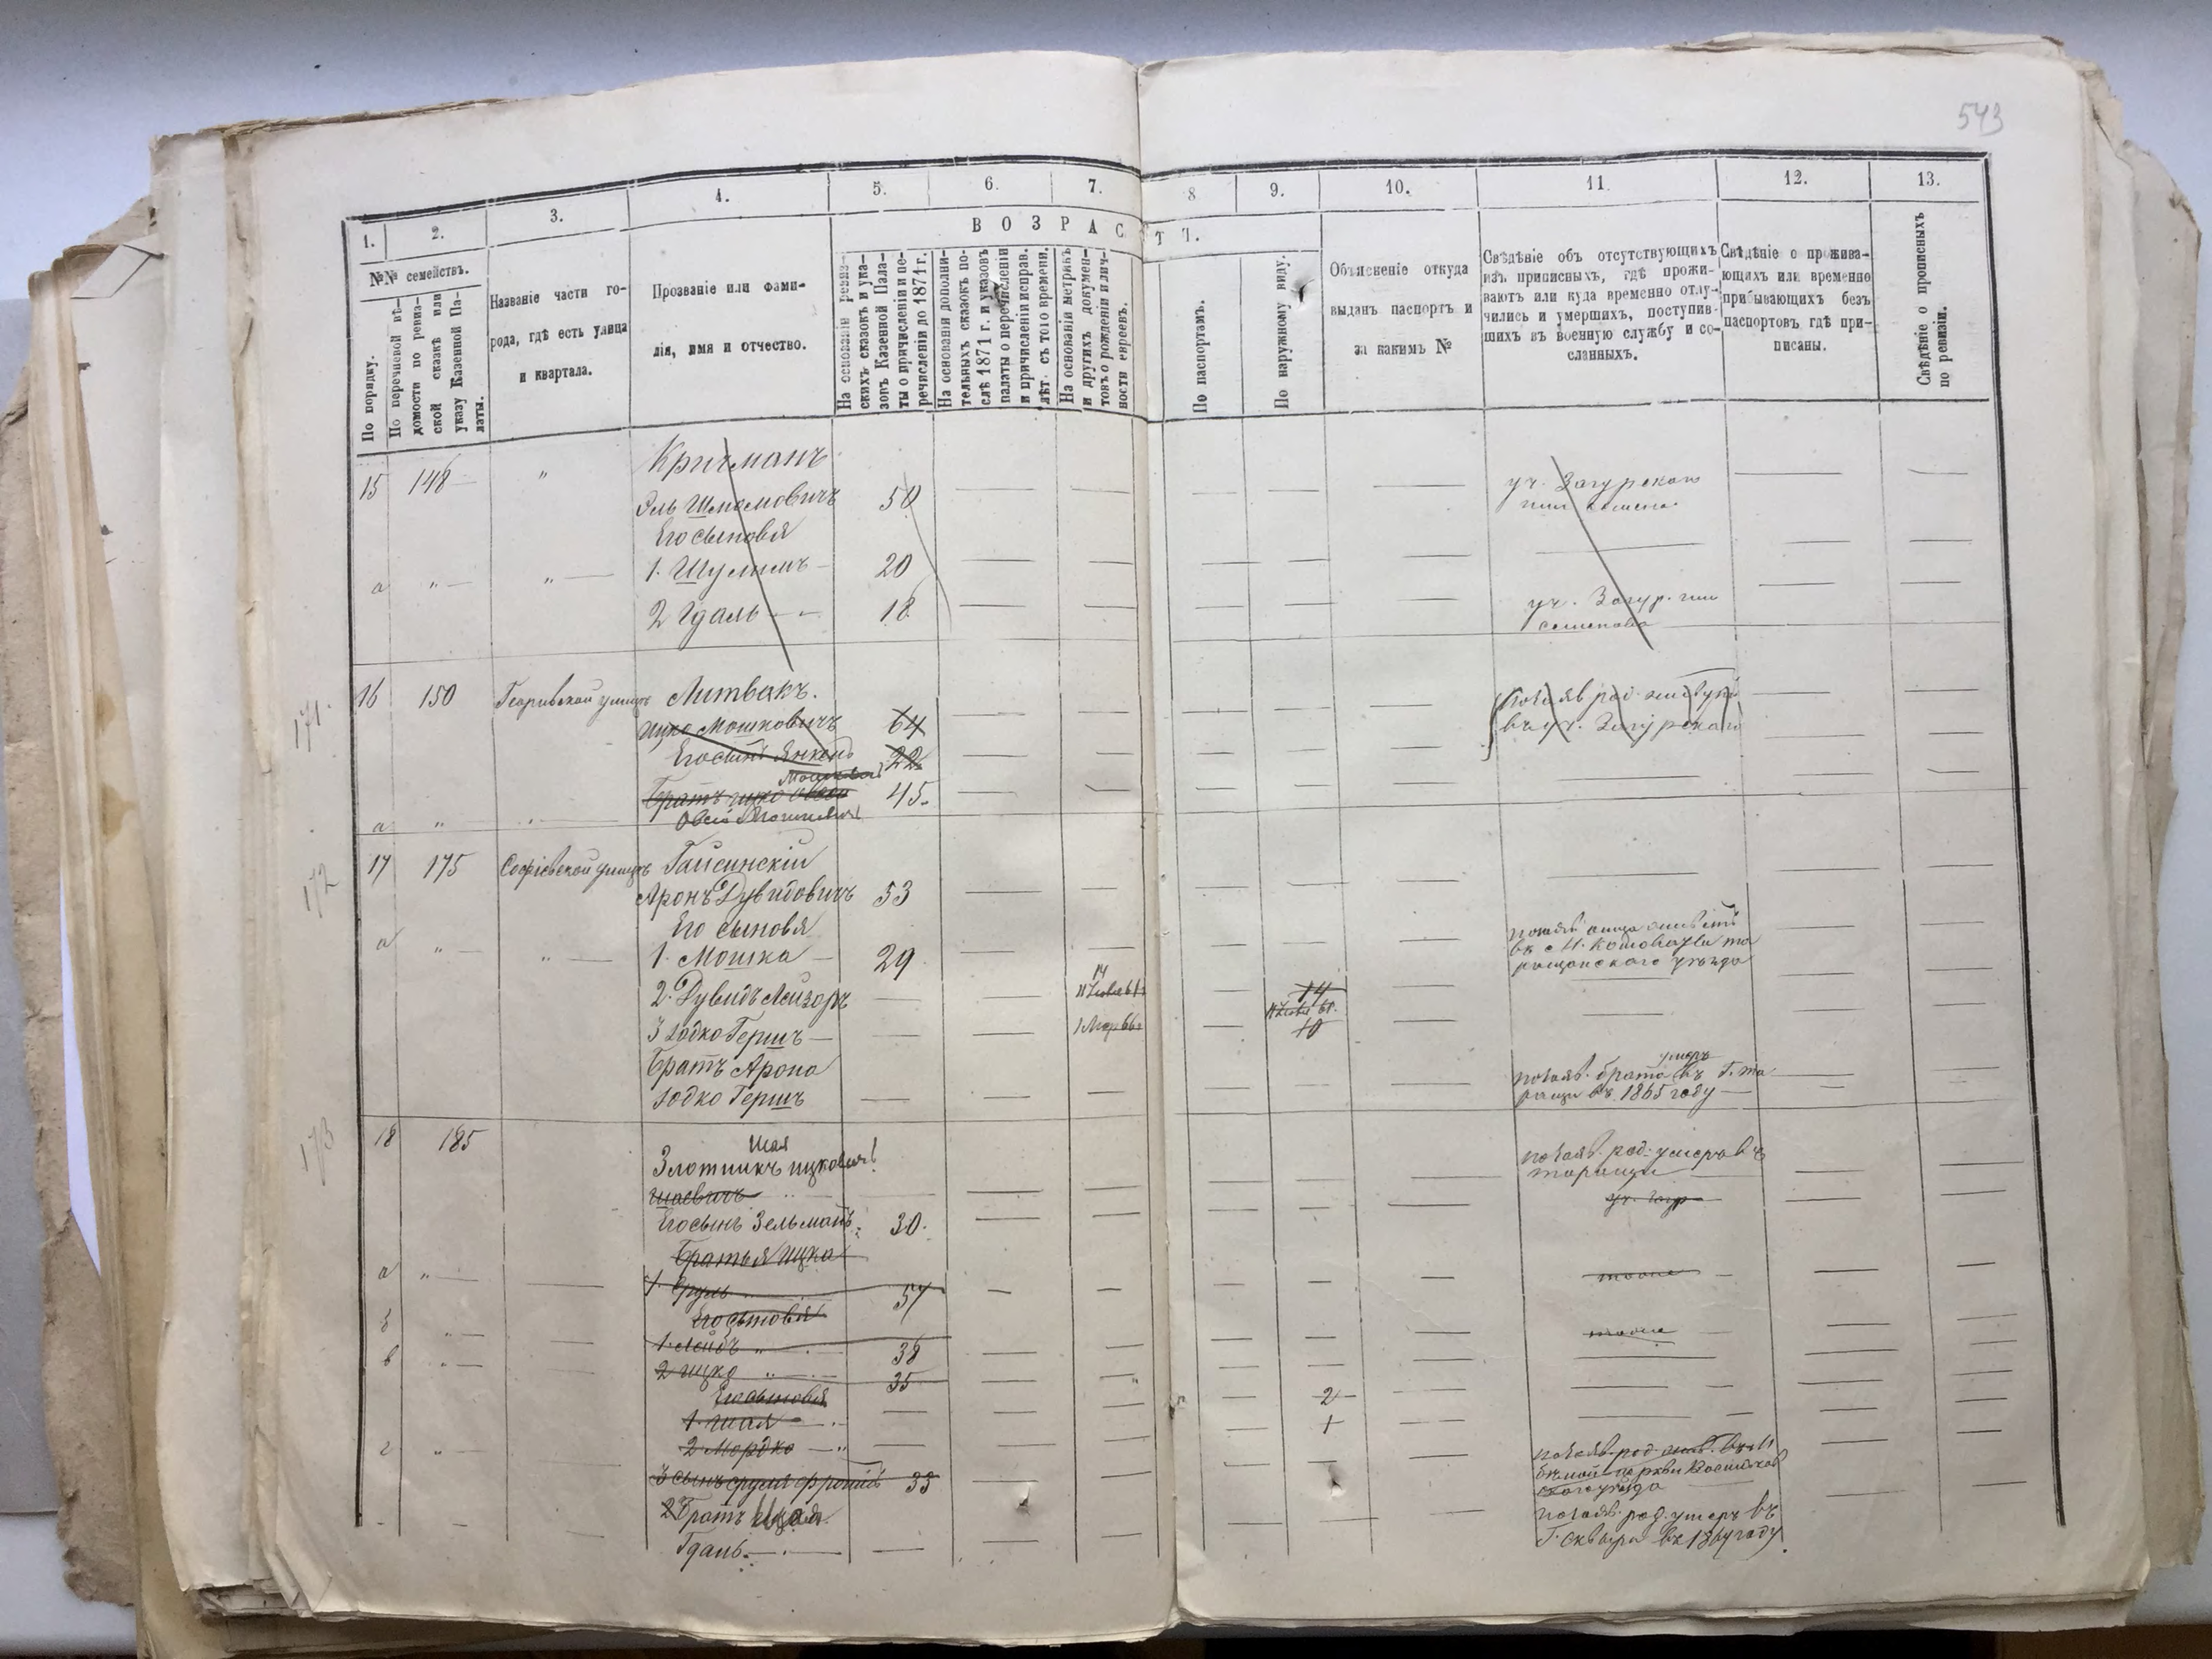 543
1.
2.
3.
4.
5.
6.
7.
8
9.
10.
11.
12.
13.
ВОЗРАСТЪ.
№№ семействъ.
По порядку.
По перечневой вѣ-
домости по ревиз-
ской сказкѣ или
указу Казенной Па-
латы.
Названіе части го-
рода, гдѣ есть улица
и квартала.
Прозваніе или фами-
лія, имя и отчество.
На основаніи ревиз-
скихъ сказокъ и ука-
зовъ Казенной Пала-
ты о причисленіи и пе-
речисленіи до 1871 г.
На основаніи дополни-
тельныхъ сказокъ по-
слѣ 1871 г. и указовъ
палаты о перечисленіи
и причисленіи исправ.
лѣт. съ того времени.
На основаніи метрикъ
и другихъ докумен-
товъ о рожденіи и лич-
ности евреевъ.
По паспортамъ.
По наружному виду.
Объясненіе откуда
выданъ паспортъ и
за какимъ №
Свѣдѣніе объ отсутствующихъ
изъ приписныхъ, гдѣ прожи-
ваютъ или куда временно отлу-
чились и умершихъ, поступив-
шихъ въ военную службу и со-
сланныхъ.
Свѣдѣніе о прожива-
ющихъ или временно
прибывающихъ безъ
паспортовъ, гдѣ при-
писаны.
Свѣдѣніе о прописныхъ
по ревизіи.
15 148 " Кричманъ
Эль Шмомовичъ 50 уч. Загурскаго
Его сыновья
а " " 1. Шулимъ 20
2 Гдаль 18 уч. Загур.
171. 16 150 улицѣ Литвакъ.
Ицко Мошковичъ 64
въ уч. Загурскаго
Его сынъ Янкель 22
Братъ Ицко 45.
а " Овсій Мошковичъ
172 17 175 Софіевской улицѣ Гайсинскій
Аронъ Дувидовичъ 53
Его сыновья
а " " 1. Мошка 29
уѣзда
2. Дувидъ Лейзоръ 14 14
3 Іодко Гершъ 1 Мар 66 10
Братъ Арона
Іодко Гершъ показ. брата умеръ въ г. Та
ращи въ 1865 году
173 18 185 Шая
Злотникъ Ицковичъ показ. род. умеръ въ
Таращи
Шаевичъ
Его сынъ Зельманъ 30.
Братья Ицка
а " 1. Сруль 57 тоже
Его сыновья
б " 1. Лейбъ " 38 тоже
в " 2 Ицко " 35
Его сыновья
1. Шая 2
2 Мордко 1
г " 3 сынъ Сруля 33
2 Братъ показ. род. умеръ въ
Гдаль г. Сквира въ году